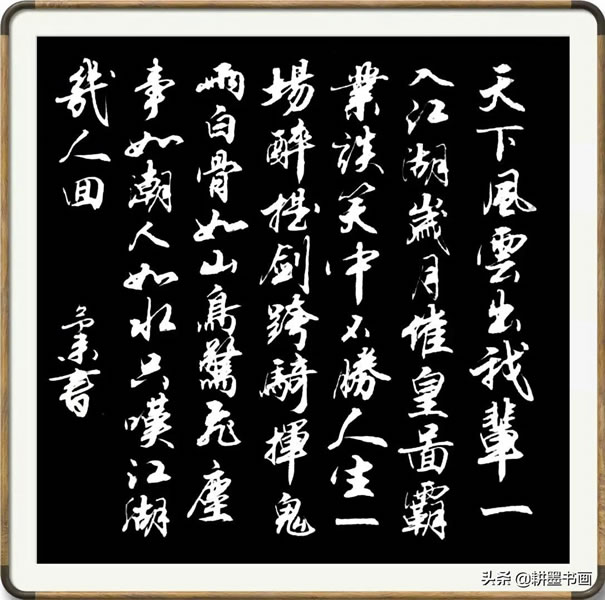 天下風雲出我輩一
入江湖歲月催皇啚霸
業談笑中不勝人生一
場醉提劍跨騎揮鬼
雨白骨如山鳥驚飛塵
事如潮人如水只嘆江湖
幾人回
書
头条 @耕墨书画